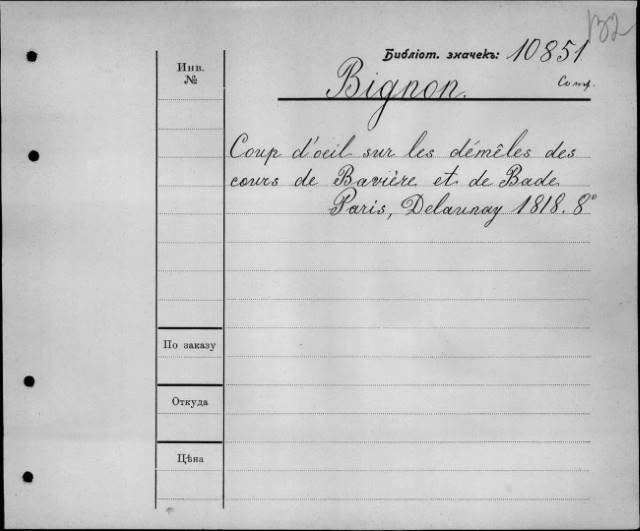 132
Библіот. значекъ: 10851
Инв.
№
Bignon.
Coup d'oeil sur les démêles des
cours de Bavière et de Bade
Paris, Delaunay 1818. 8°
По заказу
Откуда
Цѣна